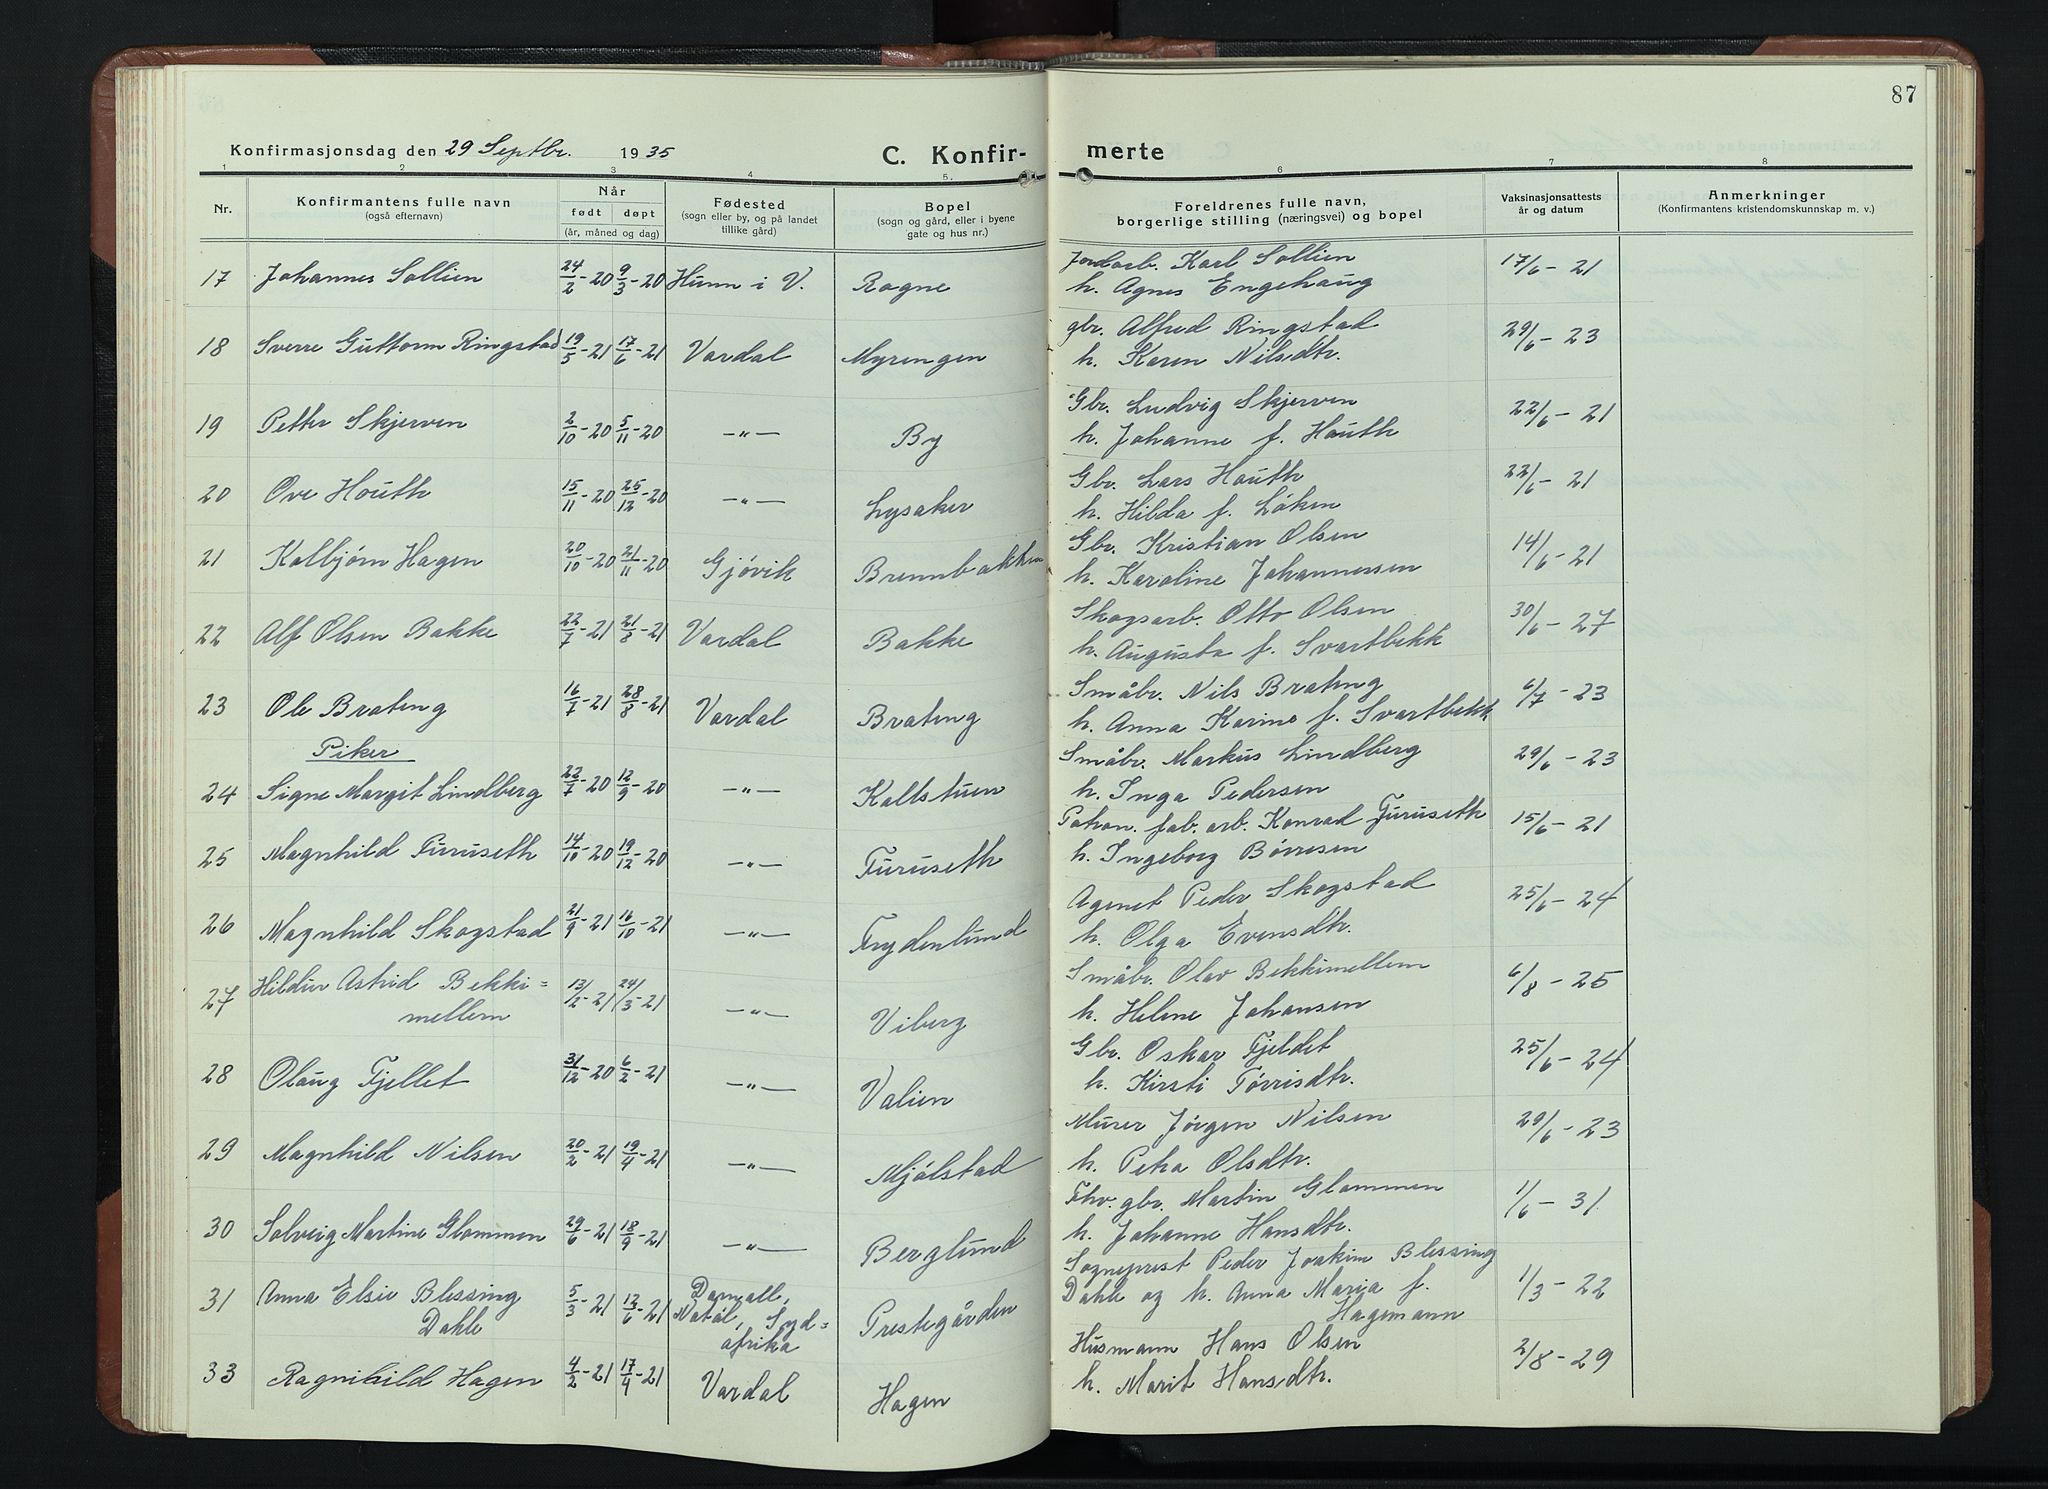 87
Konfirmasjonsdag den 29 Septbr. 1935
C. Konfir- merte
1 2 3 4 5. 6 7 8
Nr.
Konfirmantens fulle navn
(også efternavn)
Når
født døpt
(år, måned og dag)
Fødested
(sogn eller by, og på landet
tillike gård)
Bopel
(sogn og gård, eller i byene
gate og hus nr.)
Foreldrenes fulle navn,
borgerlige stilling (næringsvei) og bopel
Vaksinasjonsattests
år og datum
Anmerkninger
(Konfirmantens kristendomskunnskap m. v.)
17 Johannes Sollien 24/2-20 9/3-20 Hunn i V. Rogne
Jordarb. Karl Sollien
h. Agnes Engehaug
17/6-21
18 Sverre Guttorm Ringstad 19/5-21 17/6-21 Vardal Myrengen
gbr. Alfred Ringstad
h. Karen Nilsdtr.
29/6-23
19 Petter Skjerven 2/10-20 5/11-20 —"— By
Gbr. Ludvig Skjerven
h. Johanne f. Houth
22/6-21
20 Ove Houth 15/11-20 25/12-20 —"— Lysaker
Gbr. Lars Houth
h. Hilda f. Løken
22/6-21
21 Kolbjørn Hagen 20/10-20 21/11-20 Gjøvik Brennbakken
Gbr. Kristian Olsen
h. Karoline Johannessen
14/6-21
22 Alf Olsen Bakke 22/7-21 21/8-21 Vardal Bakke
Skogsarb. Otto Olsen
h. Augusta f. Svartbekk
30/6-27
23 Ole Brateng 16/7-21 28/8-21 Vardal Brateng
Småbr. Nils Brateng
h. Anna Karine f. Svartbekk
6/7-23
Piker
24 Signe Margit Lindberg 22/7-20 12/9-20 —"— Kallstuen
Småbr. Markus Lindberg
h. Inga Pedersen
29/6-23
25 Magnhild Furuseth 14/10-20 19/12-20 —"— Furuseth
fab. arb. Konrad Furuseth
h. Ingeborg Børresen
15/6-21
26 Magnhild Skogstad 21/9-21 16/10-21 —"— Frydenlund
Agent Peder Skogstad
h. Olga Evensdtr.
25/6-24
27 Hildur Astrid Bekki=
mellem 13/2-21 24/3-21 —"— Viberg
Småbr. Olav Bekkimellem
h. Helene Johansen
6/8-25
28 Olaug Fjellet 31/12-20 6/2-21 —"— Valien
Gbr. Oskar Fjeldet
h. Kirsti Tørrisdtr.
25/6-24
29 Magnhild Nilsen 20/2-21 19/4-21 —"— Mjølstad
Murer Jørgen Nilsen
h. Peka Olsdtr.
29/6-23
30 Solveig Martine Glommen 29/6-21 18/9-21 —"— Berglund
Fhv. gbr. Martin Glommen
h. Johanne Hansdtr.
1/6-31
31 Anna Elsie Blessing
Dahle 5/3-21 12/6-21 Darnall,
Natal, Syd=
afrika Prestegården
Sogneprest Peder Joakim Blessing
Dahle og h. Anna Maria f.
Hagemann
1/3-22
33 Ragnihild Hagen 4/2-21 17/4-21 Vardal Hagen
Husmann Hans Olsen
h. Marit Hansdtr.
2/8-29